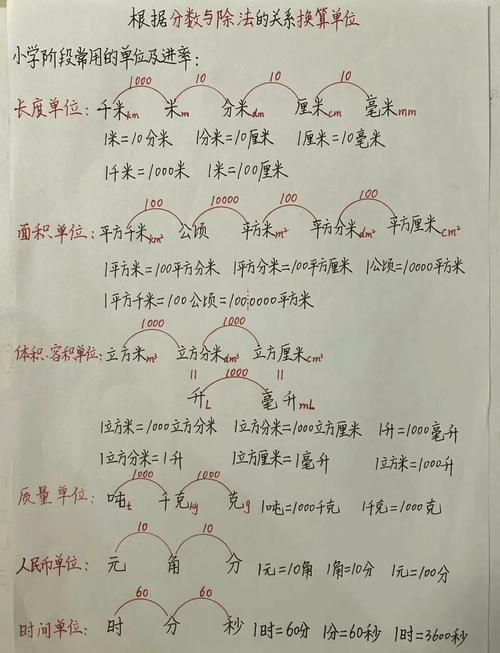 根据分数与除法的关系换算单位
小学阶段常用的单位及进率:
1000 10 10 10
长度单位: 千米km 米m 分米dm 厘米cm 毫米mm
1米=10分米 1分米=10厘米 1厘米=10毫米
1千米=1000米 1米=100厘米
100 10000 100 100
面积单位: 平方千米km² 公顷 平方米m² 平方分米dm² 平方厘米cm²
1平方米=100平方分米 1平方分米=100平方厘米 1公顷=10000平方米
1平方千米=100公顷=1000000平方米
1000 1000
体积.容积单位: 立方米m³ 立方分米dm³ 立方厘米cm³
= =
1000
升L 毫升mL
1立方米=1000立方分米 1立方分米=1000立方厘米 1升=1000毫升
1立方分米=1升 1立方厘米=1毫升 1立方米=1000升
1000 1000
质量单位: 吨t 千克kg 克g 1吨=1000千克 1千克=1000克
10 10
人民币单位: 元 角 分 1元=10角 1角=10分 1元=100分
60 60
时间单位: 时 分 秒 1时=60分 1分=60秒 1时=3600秒